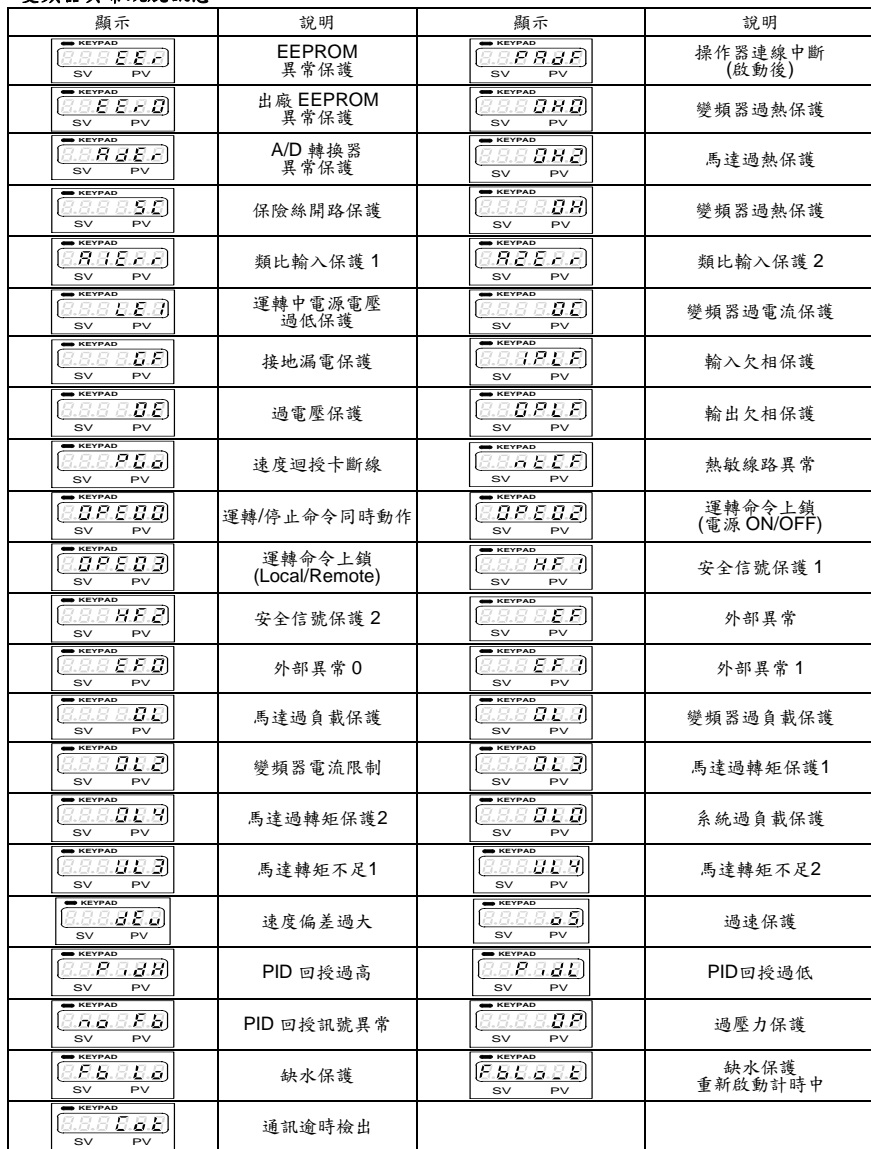 顯示 說明 顯示 說明
KEYPAD EEr SV PV EEPROM 異常保護 KEYPAD PAdF SV PV 操作器連線中斷 (啟動後)
KEYPAD EEr0 SV PV 出廠 EEPROM 異常保護 KEYPAD OH0 SV PV 變頻器過熱保護
KEYPAD AdEr SV PV A/D 轉換器 異常保護 KEYPAD OH2 SV PV 馬達過熱保護
KEYPAD SC SV PV 保險絲開路保護 KEYPAD OH SV PV 變頻器過熱保護
KEYPAD A1Err SV PV 類比輸入保護 1 KEYPAD A2Err SV PV 類比輸入保護 2
KEYPAD LE1 SV PV 運轉中電源電壓 過低保護 KEYPAD OC SV PV 變頻器過電流保護
KEYPAD GF SV PV 接地漏電保護 KEYPAD IPLF SV PV 輸入欠相保護
KEYPAD OE SV PV 過電壓保護 KEYPAD OPLF SV PV 輸出欠相保護
KEYPAD PGo SV PV 速度迴授卡斷線 KEYPAD ntCF SV PV 熱敏線路異常
KEYPAD OPE00 SV PV 運轉/停止命令同時動作 KEYPAD OPE02 SV PV 運轉命令上鎖 (電源 ON/OFF)
KEYPAD OPE03 SV PV 運轉命令上鎖 (Local/Remote) KEYPAD HF1 SV PV 安全信號保護 1
KEYPAD HF2 SV PV 安全信號保護 2 KEYPAD EF SV PV 外部異常
KEYPAD EF0 SV PV 外部異常 0 KEYPAD EF1 SV PV 外部異常 1
KEYPAD OL SV PV 馬達過負載保護 KEYPAD OL1 SV PV 變頻器過負載保護
KEYPAD OL2 SV PV 變頻器電流限制 KEYPAD OL3 SV PV 馬達過轉矩保護1
KEYPAD OL4 SV PV 馬達過轉矩保護2 KEYPAD OL0 SV PV 系統過負載保護
KEYPAD UL3 SV PV 馬達轉矩不足1 KEYPAD UL4 SV PV 馬達轉矩不足2
KEYPAD dEv SV PV 速度偏差過大 KEYPAD oS SV PV 過速保護
KEYPAD PidH SV PV PID 回授過高 KEYPAD PidL SV PV PID回授過低
KEYPAD no Fb SV PV PID 回授訊號異常 KEYPAD OP SV PV 過壓力保護
KEYPAD Fb Lo SV PV 缺水保護 KEYPAD FbLo_t SV PV 缺水保護 重新啟動計時中
KEYPAD Cot SV PV 通訊逾時檢出